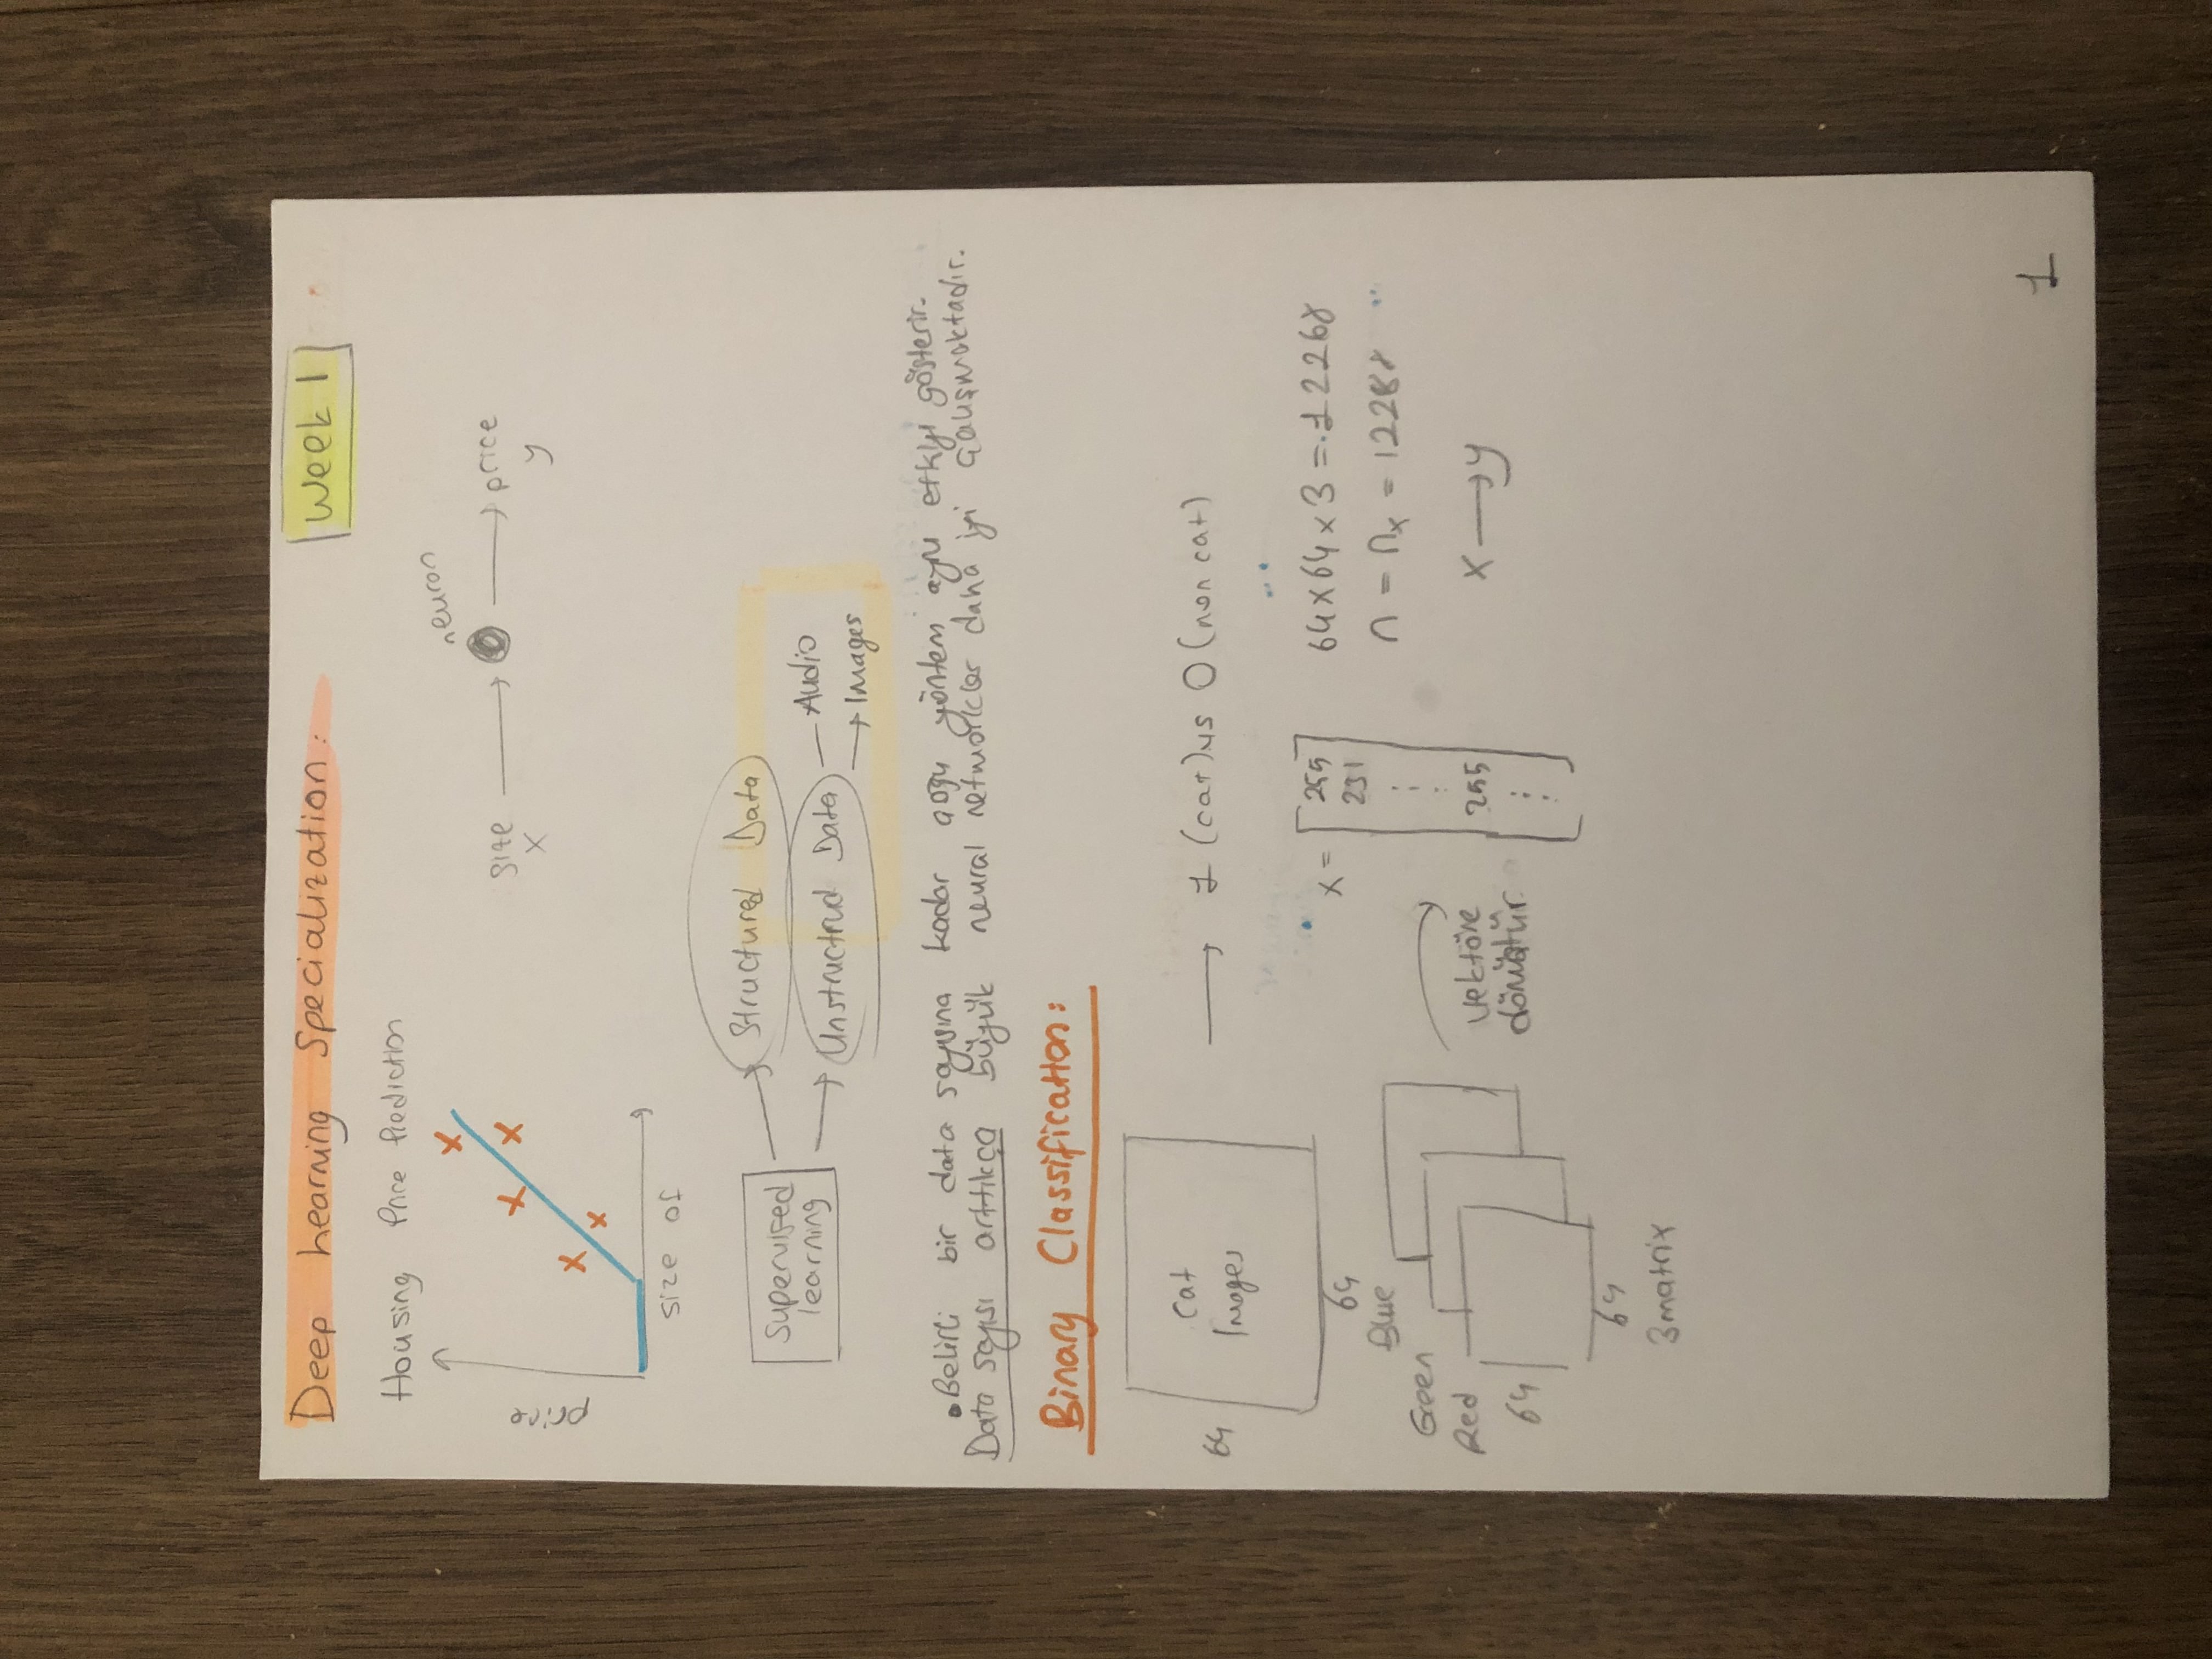 Deep Learning Specialization:
Week 1
Housing Price Prediction
price
size of
neuron
size
x
price
y
Supervised
learning
Structured Data
Unstructrud Data
Audio
Images
• Belirli bir data sayısına kadar çoğu yöntem aynı etkiyi gösterir.
Data sayısı arttıkça büyük neural networkler daha iyi çalışmaktadır.
Binary Classification:
Cat
Images
64
64
1 (cat) vs 0 (non cat)
Blue
Green
Red
64
64
3 matrix
vektöre
dönüştür
x =
255
231
255
64 x 64 x 3 = 12268
n = nx = 12288
x → y
1